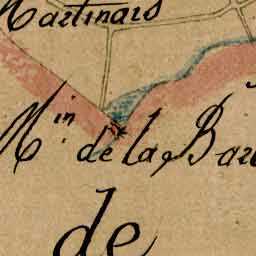 Martinais
Min de la Bar
de